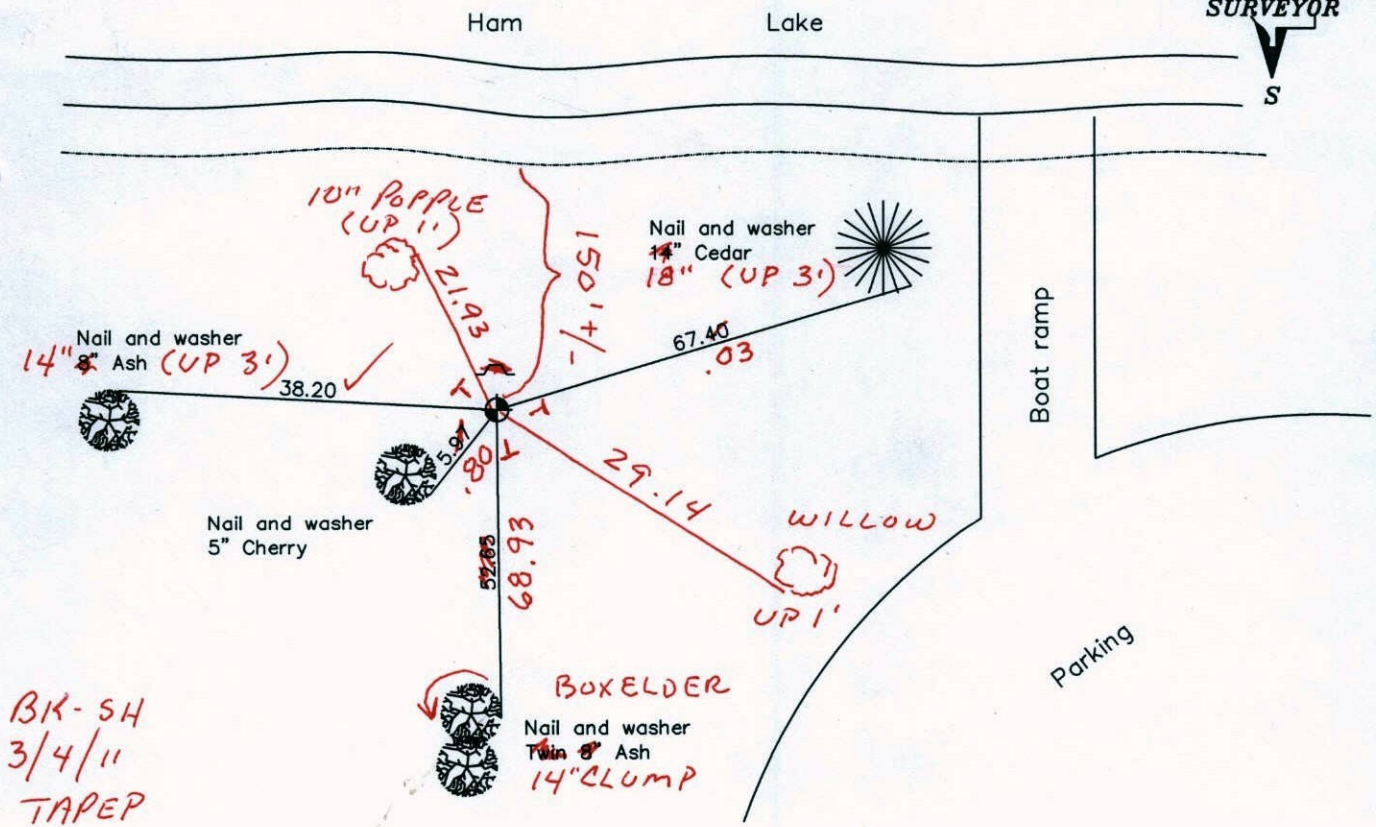 SURVEYOR
S
Ham Lake
10" POPPLE
(UP 1')
21.93
150'+/-
Nail and washer
14" Cedar
18" (UP 3')
67.40
.03
Boat ramp
Nail and washer
14" 8" Ash (UP 3')
38.20
5.97
.80
T
T
T
Nail and washer
5" Cherry
52.65
68.93
29.14
WILLOW
UP 1'
Parking
BOXELDER
Nail and washer
Twin 8" Ash
14" CLUMP
BK-SH
3/4/11
TAPEP